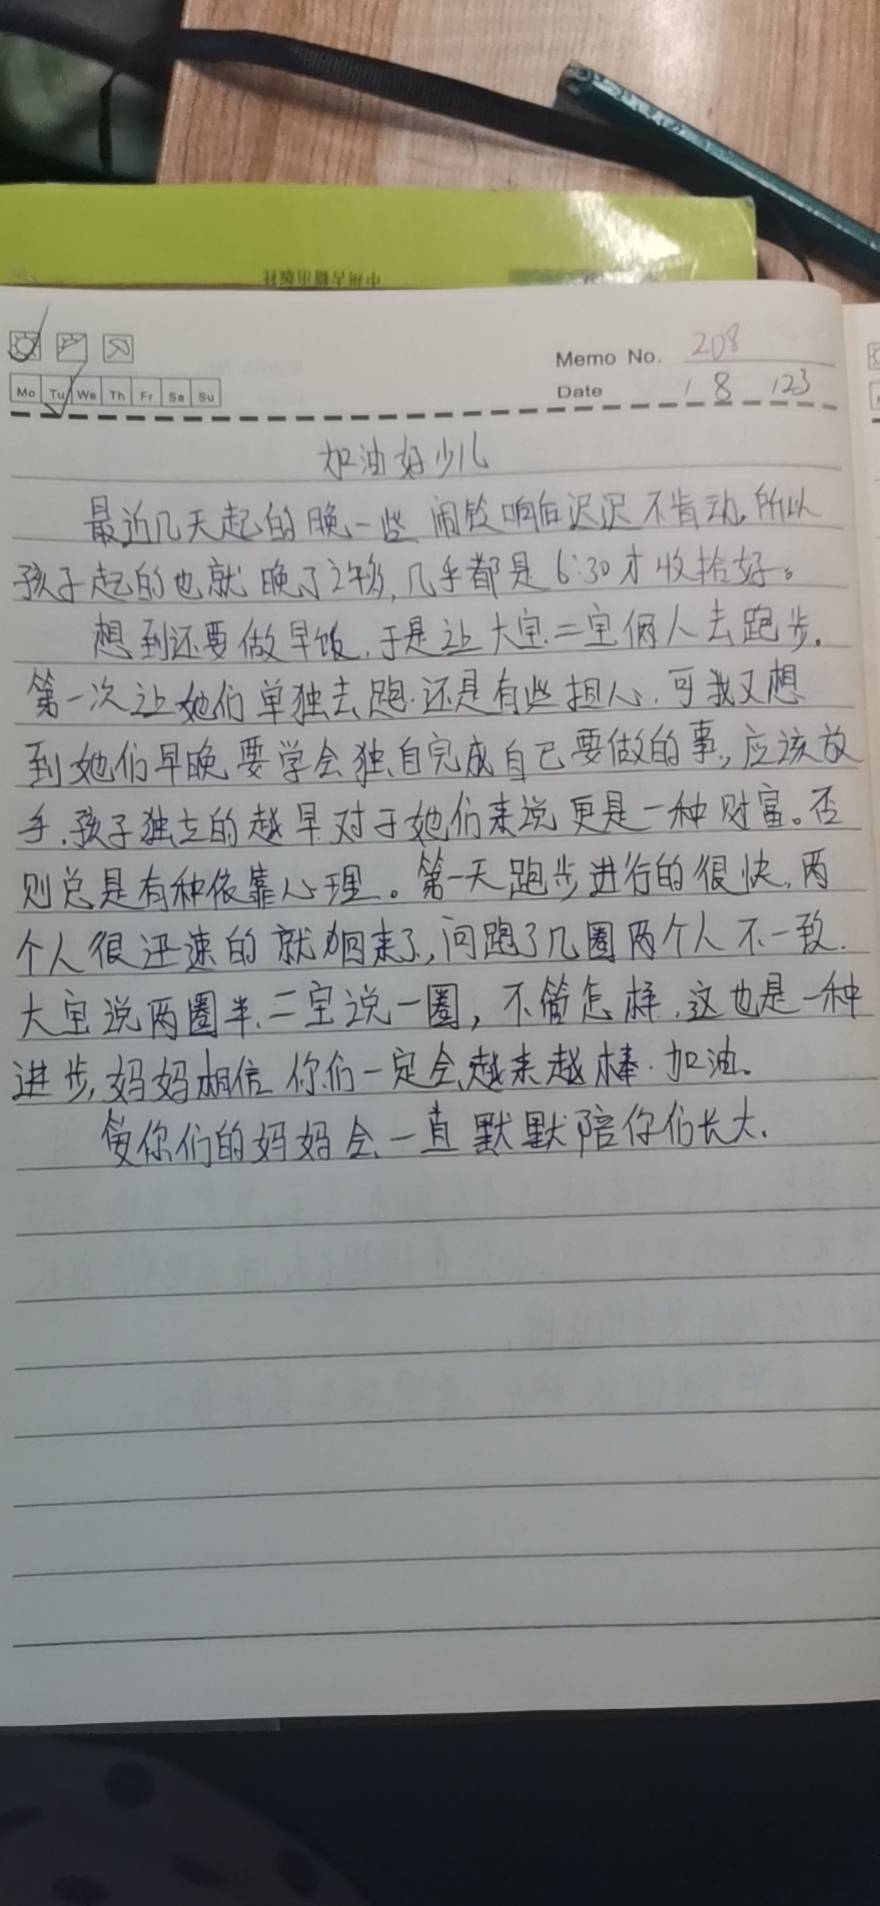 Memo No. 208
Mo Tu We Th Fr Sa Su
Date 1 8 123
加油好少儿
最近几天起的晚一些 闹铃响后迟迟不肯动。所以
孩子起的也就晚了 几乎都是6:30才收拾好。
想到还要做早饭,于是让大宝.二宝俩人去跑步.
第一次让她们单独去跑.还是有些担心.可我又想
到她们早晚要学会独自完成自己要做的事,应该放
手.孩子独立的越早对于她们来说更是一种财富。否
则总是有种依靠心理。第一天跑步进行的很快,两
个人很迅速的就回来了,问跑了几圈两个人不一致.
大宝说两圈半.二宝说一圈,不管怎样,这也是一种
进步,妈妈相信你们一定会越来越棒.加油。
爱你们的妈妈会一直默默陪你们长大.